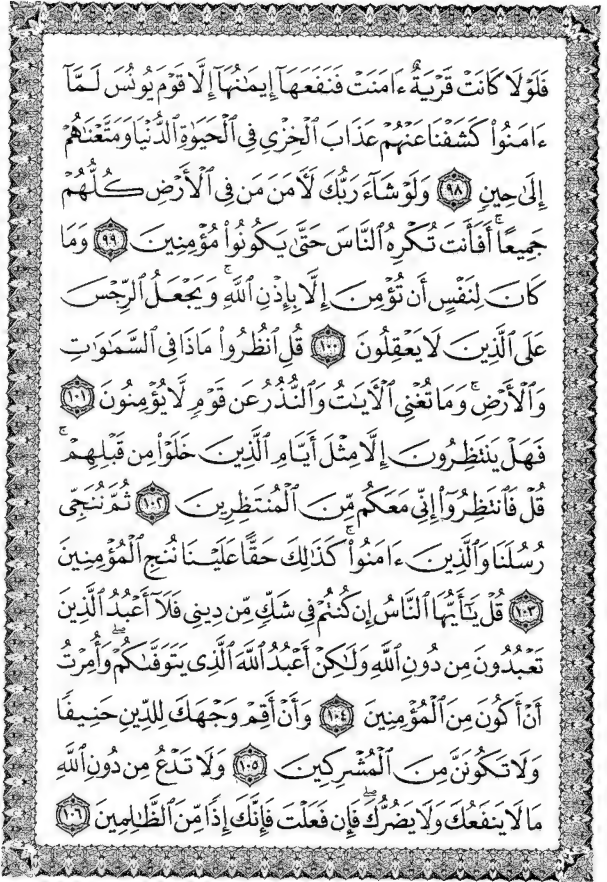 فَلَوْلَا كَانَتْ قَرْيَةٌ ءَامَنَتْ فَنَفَعَهَآ إِيمَٰنُهَآ إِلَّا قَوْمَ يُونُسَ لَمَّآ
ءَامَنُوا۟ كَشَفْنَا عَنْهُمْ عَذَابَ ٱلْخِزْىِ فِى ٱلْحَيَوٰةِ ٱلدُّنْيَا وَمَتَّعْنَٰهُمْ
إِلَىٰ حِينٍ ٩٨ وَلَوْ شَآءَ رَبُّكَ لَءَامَنَ مَن فِى ٱلْأَرْضِ كُلُّهُمْ
جَمِيعًا ۚ أَفَأَنتَ تُكْرِهُ ٱلنَّاسَ حَتَّىٰ يَكُونُوا۟ مُؤْمِنِينَ ٩٩ وَمَا
كَانَ لِنَفْسٍ أَن تُؤْمِنَ إِلَّا بِإِذْنِ ٱللَّهِ ۚ وَيَجْعَلُ ٱلرِّجْسَ
عَلَى ٱلَّذِينَ لَا يَعْقِلُونَ ١٠٠ قُلِ ٱنظُرُوا۟ مَاذَا فِى ٱلسَّمَٰوَٰتِ
وَٱلْأَرْضِ ۚ وَمَا تُغْنِى ٱلْءَايَٰتُ وَٱلنُّذُرُ عَن قَوْمٍ لَّا يُؤْمِنُونَ ١٠١
فَهَلْ يَنتَظِرُونَ إِلَّا مِثْلَ أَيَّامِ ٱلَّذِينَ خَلَوْا۟ مِن قَبْلِهِمْ ۚ
قُلْ فَٱنتَظِرُوٓا۟ إِنِّى مَعَكُم مِّنَ ٱلْمُنتَظِرِينَ ١٠٢ ثُمَّ نُنَجِّى
رُسُلَنَا وَٱلَّذِينَ ءَامَنُوا۟ ۚ كَذَٰلِكَ حَقًّا عَلَيْنَا نُنجِ ٱلْمُؤْمِنِينَ
١٠٣ قُلْ يَٰٓأَيُّهَا ٱلنَّاسُ إِن كُنتُمْ فِى شَكٍّ مِّن دِينِى فَلَآ أَعْبُدُ ٱلَّذِينَ
تَعْبُدُونَ مِن دُونِ ٱللَّهِ وَلَٰكِنْ أَعْبُدُ ٱللَّهَ ٱلَّذِى يَتَوَفَّىٰكُمْ ۖ وَأُمِرْتُ
أَنْ أَكُونَ مِنَ ٱلْمُؤْمِنِينَ ١٠٤ وَأَنْ أَقِمْ وَجْهَكَ لِلدِّينِ حَنِيفًا
وَلَا تَكُونَنَّ مِنَ ٱلْمُشْرِكِينَ ١٠٥ وَلَا تَدْعُ مِن دُونِ ٱللَّهِ
مَا لَا يَنفَعُكَ وَلَا يَضُرُّكَ ۖ فَإِن فَعَلْتَ فَإِنَّكَ إِذًا مِّنَ ٱلظَّٰلِمِينَ ١٠٦